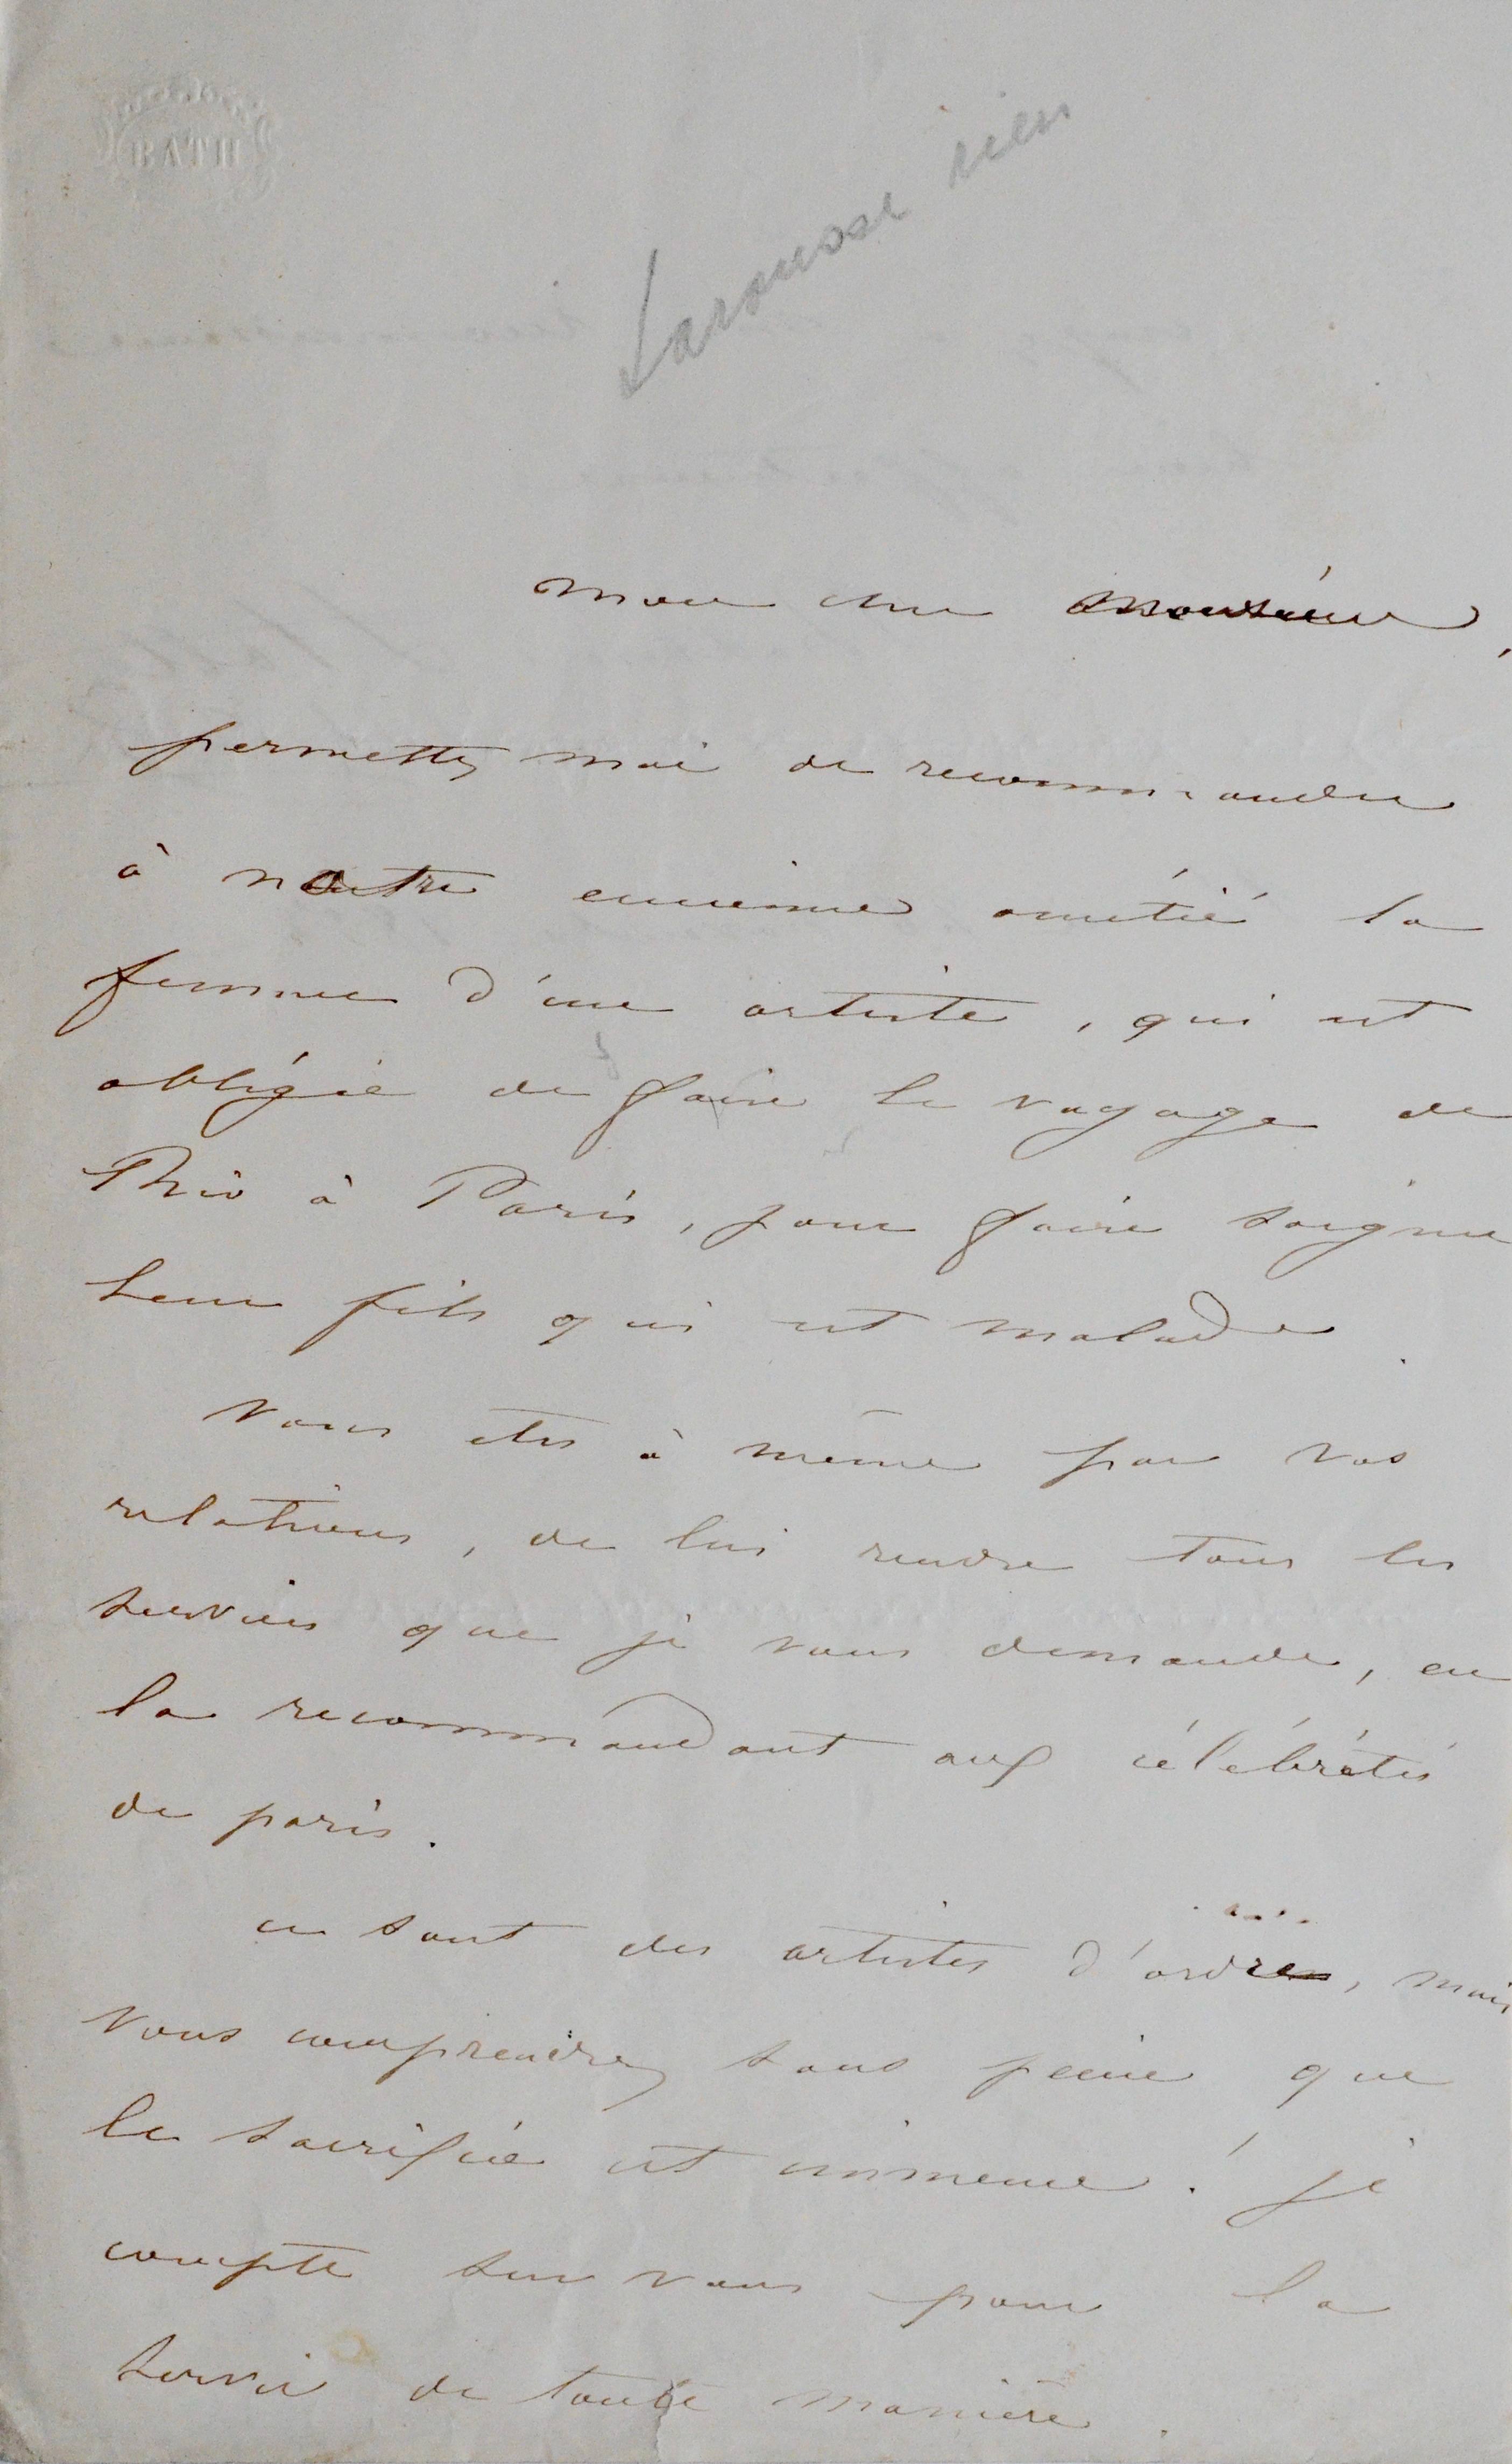 BATH
Larousse rien
mon cher monsieur,
permettez moi de recommander
à notre ancienne amitié la
femme d'un artiste, qui est
obligée de faire le voyage de
Rio à Paris, pour faire soigner
leur fils qui est malade.
vous etes à même par vos
relations, de lui rendre tous les
services que je vous demande, en
la recommandant aux célébrités
de paris.
ce sont des artistes d'ordre, mais
vous comprendrez sans peine que
le sacrifice est immense! je
compte sur vous pour la
servir de toute manière.